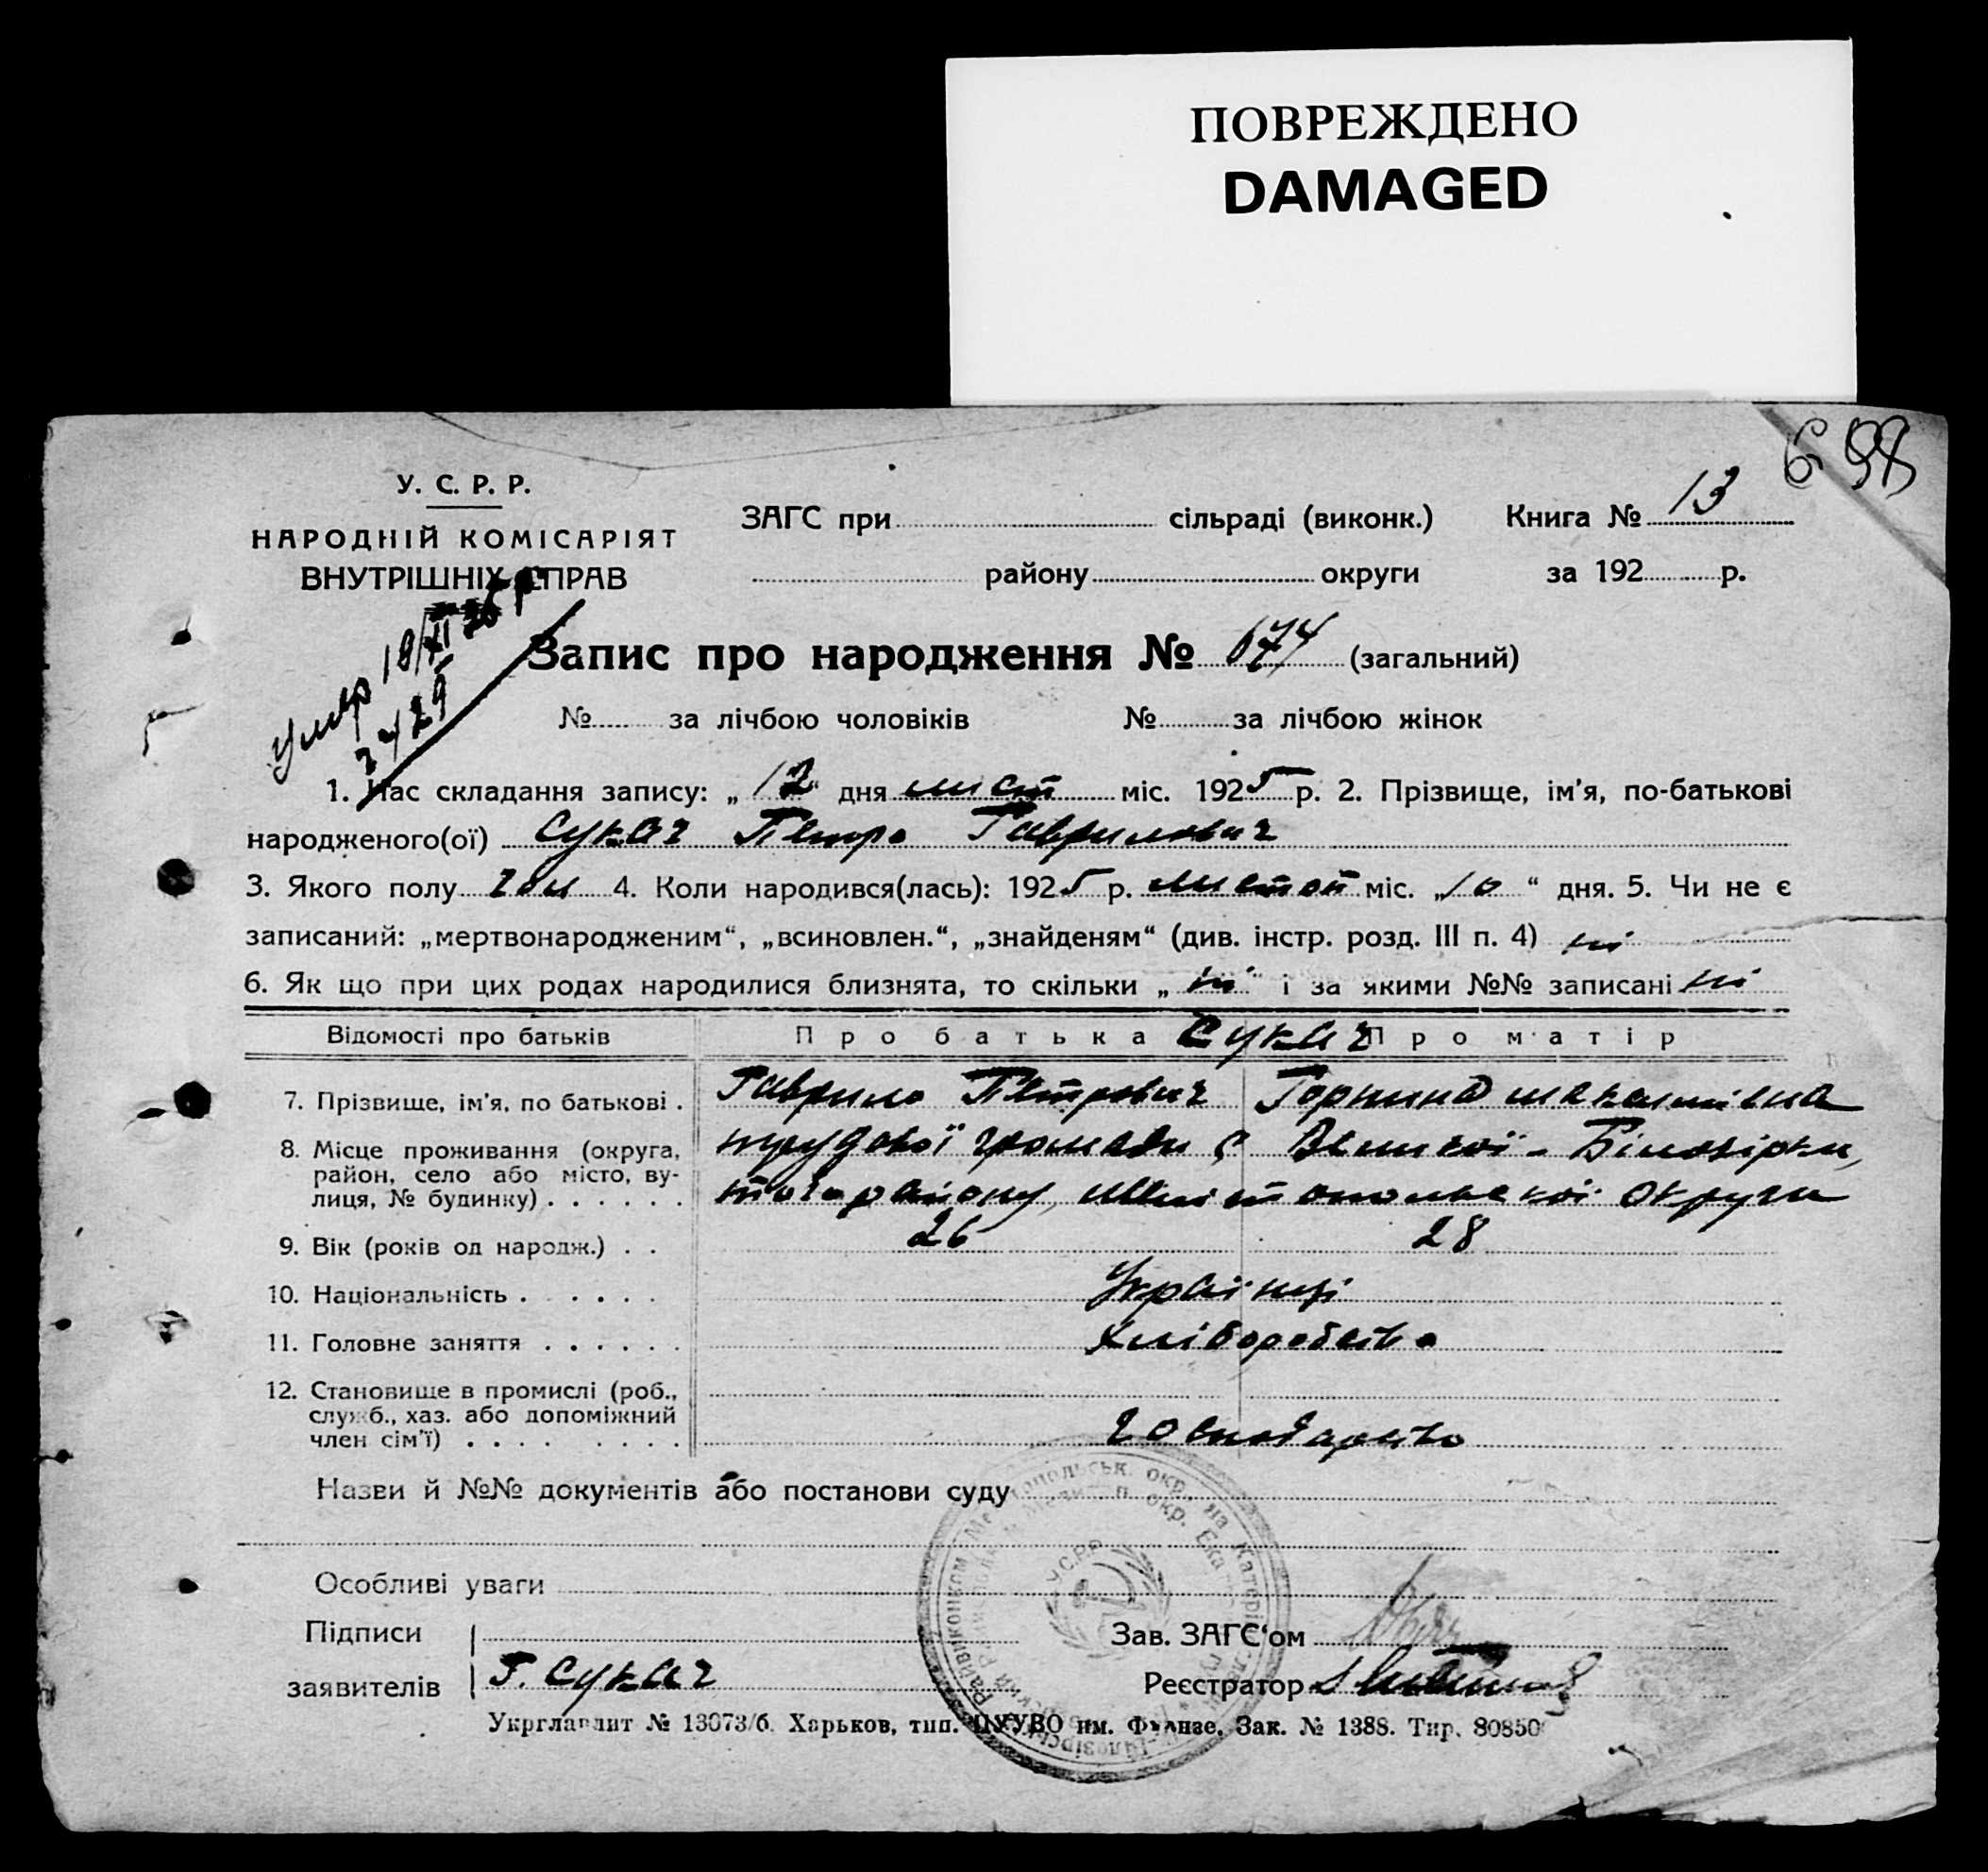 ПОВРЕЖДЕНО
DAMAGED
698
У. С. Р. Р.
НАРОДНІЙ КОМІСАРІЯТ
ВНУТРІШНІХ СПРАВ
ЗАГС при сільраді (виконк.) Книга № 13
району округи за 192 р.
Умер 19/XII 25 р
Запис про народження № 674 (загальний)
№ за лічбою чоловіків № за лічбою жінок
1. Час складання запису: „ 12 “ дня лист міс. 1925 р. 2. Прізвище, ім'я, по-батькові
народженого(ої) Сукач Петро Гаврилович
3. Якого полу чол 4. Коли народився(лась): 1925 р. листоп міс. „ 10 “ дня. 5. Чи не є
записаний: „мертвонародженим“, „всиновлен.“, „знайденям“ (див. інстр. розд. III п. 4) ні
6. Як що при цих родах народилися близнята, то скільки „ ні “ і за якими №№ записані ні
Відомості про батьків Про батька Сукач Про матір
7. Прізвище, ім'я, по батькові . Гаврило Петрович
8. Місце проживання (округа, громади с Великої - Білозірки,
район, село або місто, ву-
лиця, № будинку) . . . . . . того району, Мелітопольскої округи
9. Вік (років од народж.) . . 26 28
10. Національність . . . . . . Українці
11. Головне заняття . . . . . . Хліборобство
12. Становище в промислі (роб.,
служб., хаз. або допоміжний
член сім'ї) . . . . . . . . господарство
Назви й №№ документів або постанови суду
Особливі уваги
Підписи
заявителів Г. Сукач
Зав. ЗАГС'ом
Реєстратор
Укрглавлит № 13073/б. Харьков, тип. ЦУУВО им. Фрунзе, Зак. № 1388. Тир. 80850